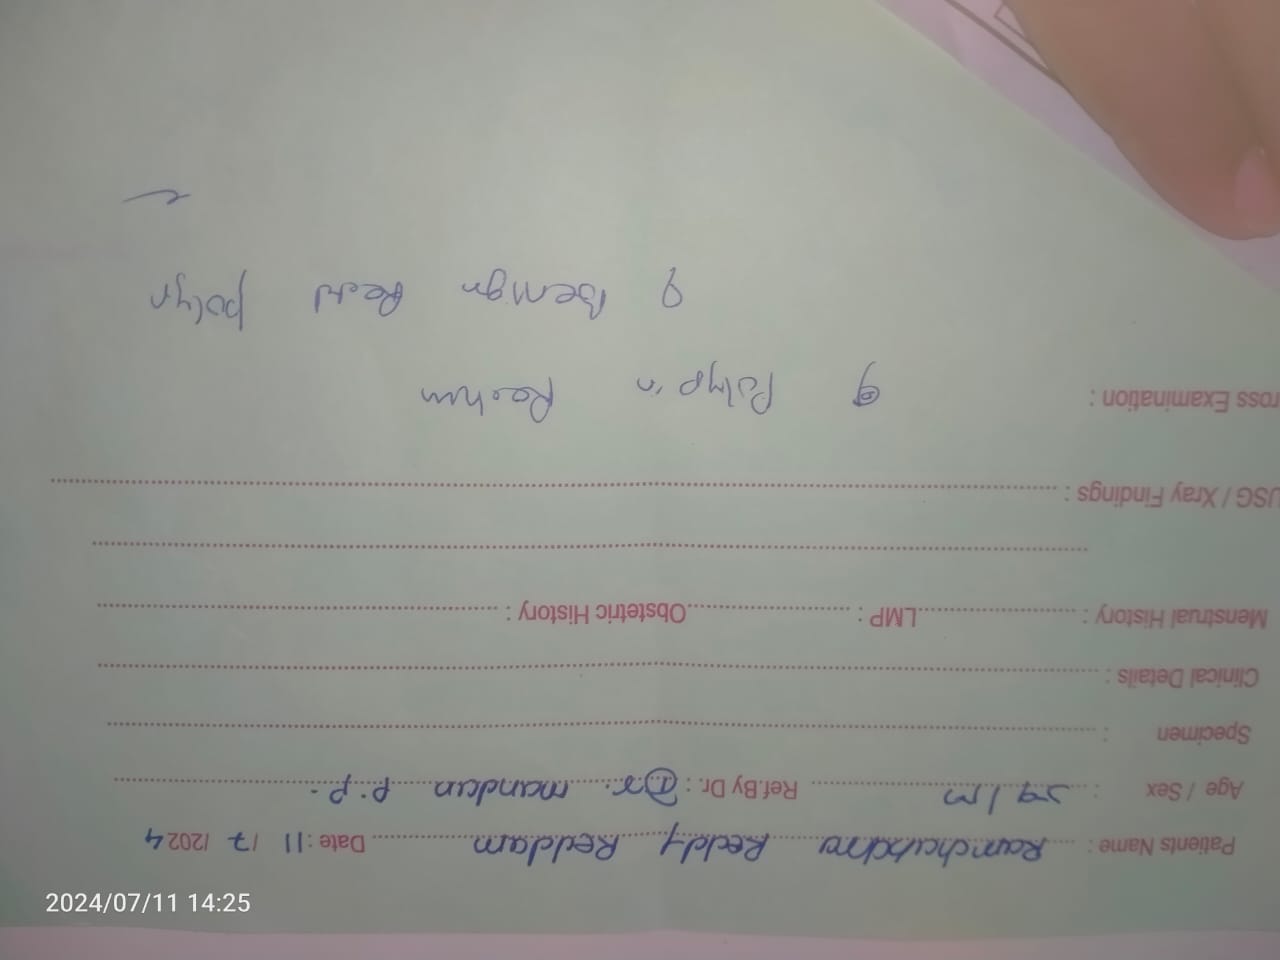 Patients Name : Ramchandra Reddy Reddam Date : 11 / 7 /2024
Age / Sex : 59/M Ref.By Dr. : Dr. mandan P.P.
Specimen :
Clinical Details :
Menstrual History : LMP : Obstetric History :
USG / Xray Findings :
ross Examination : Polyp in Rectum
? Benign Rectal polyp
2024/07/11 14:25